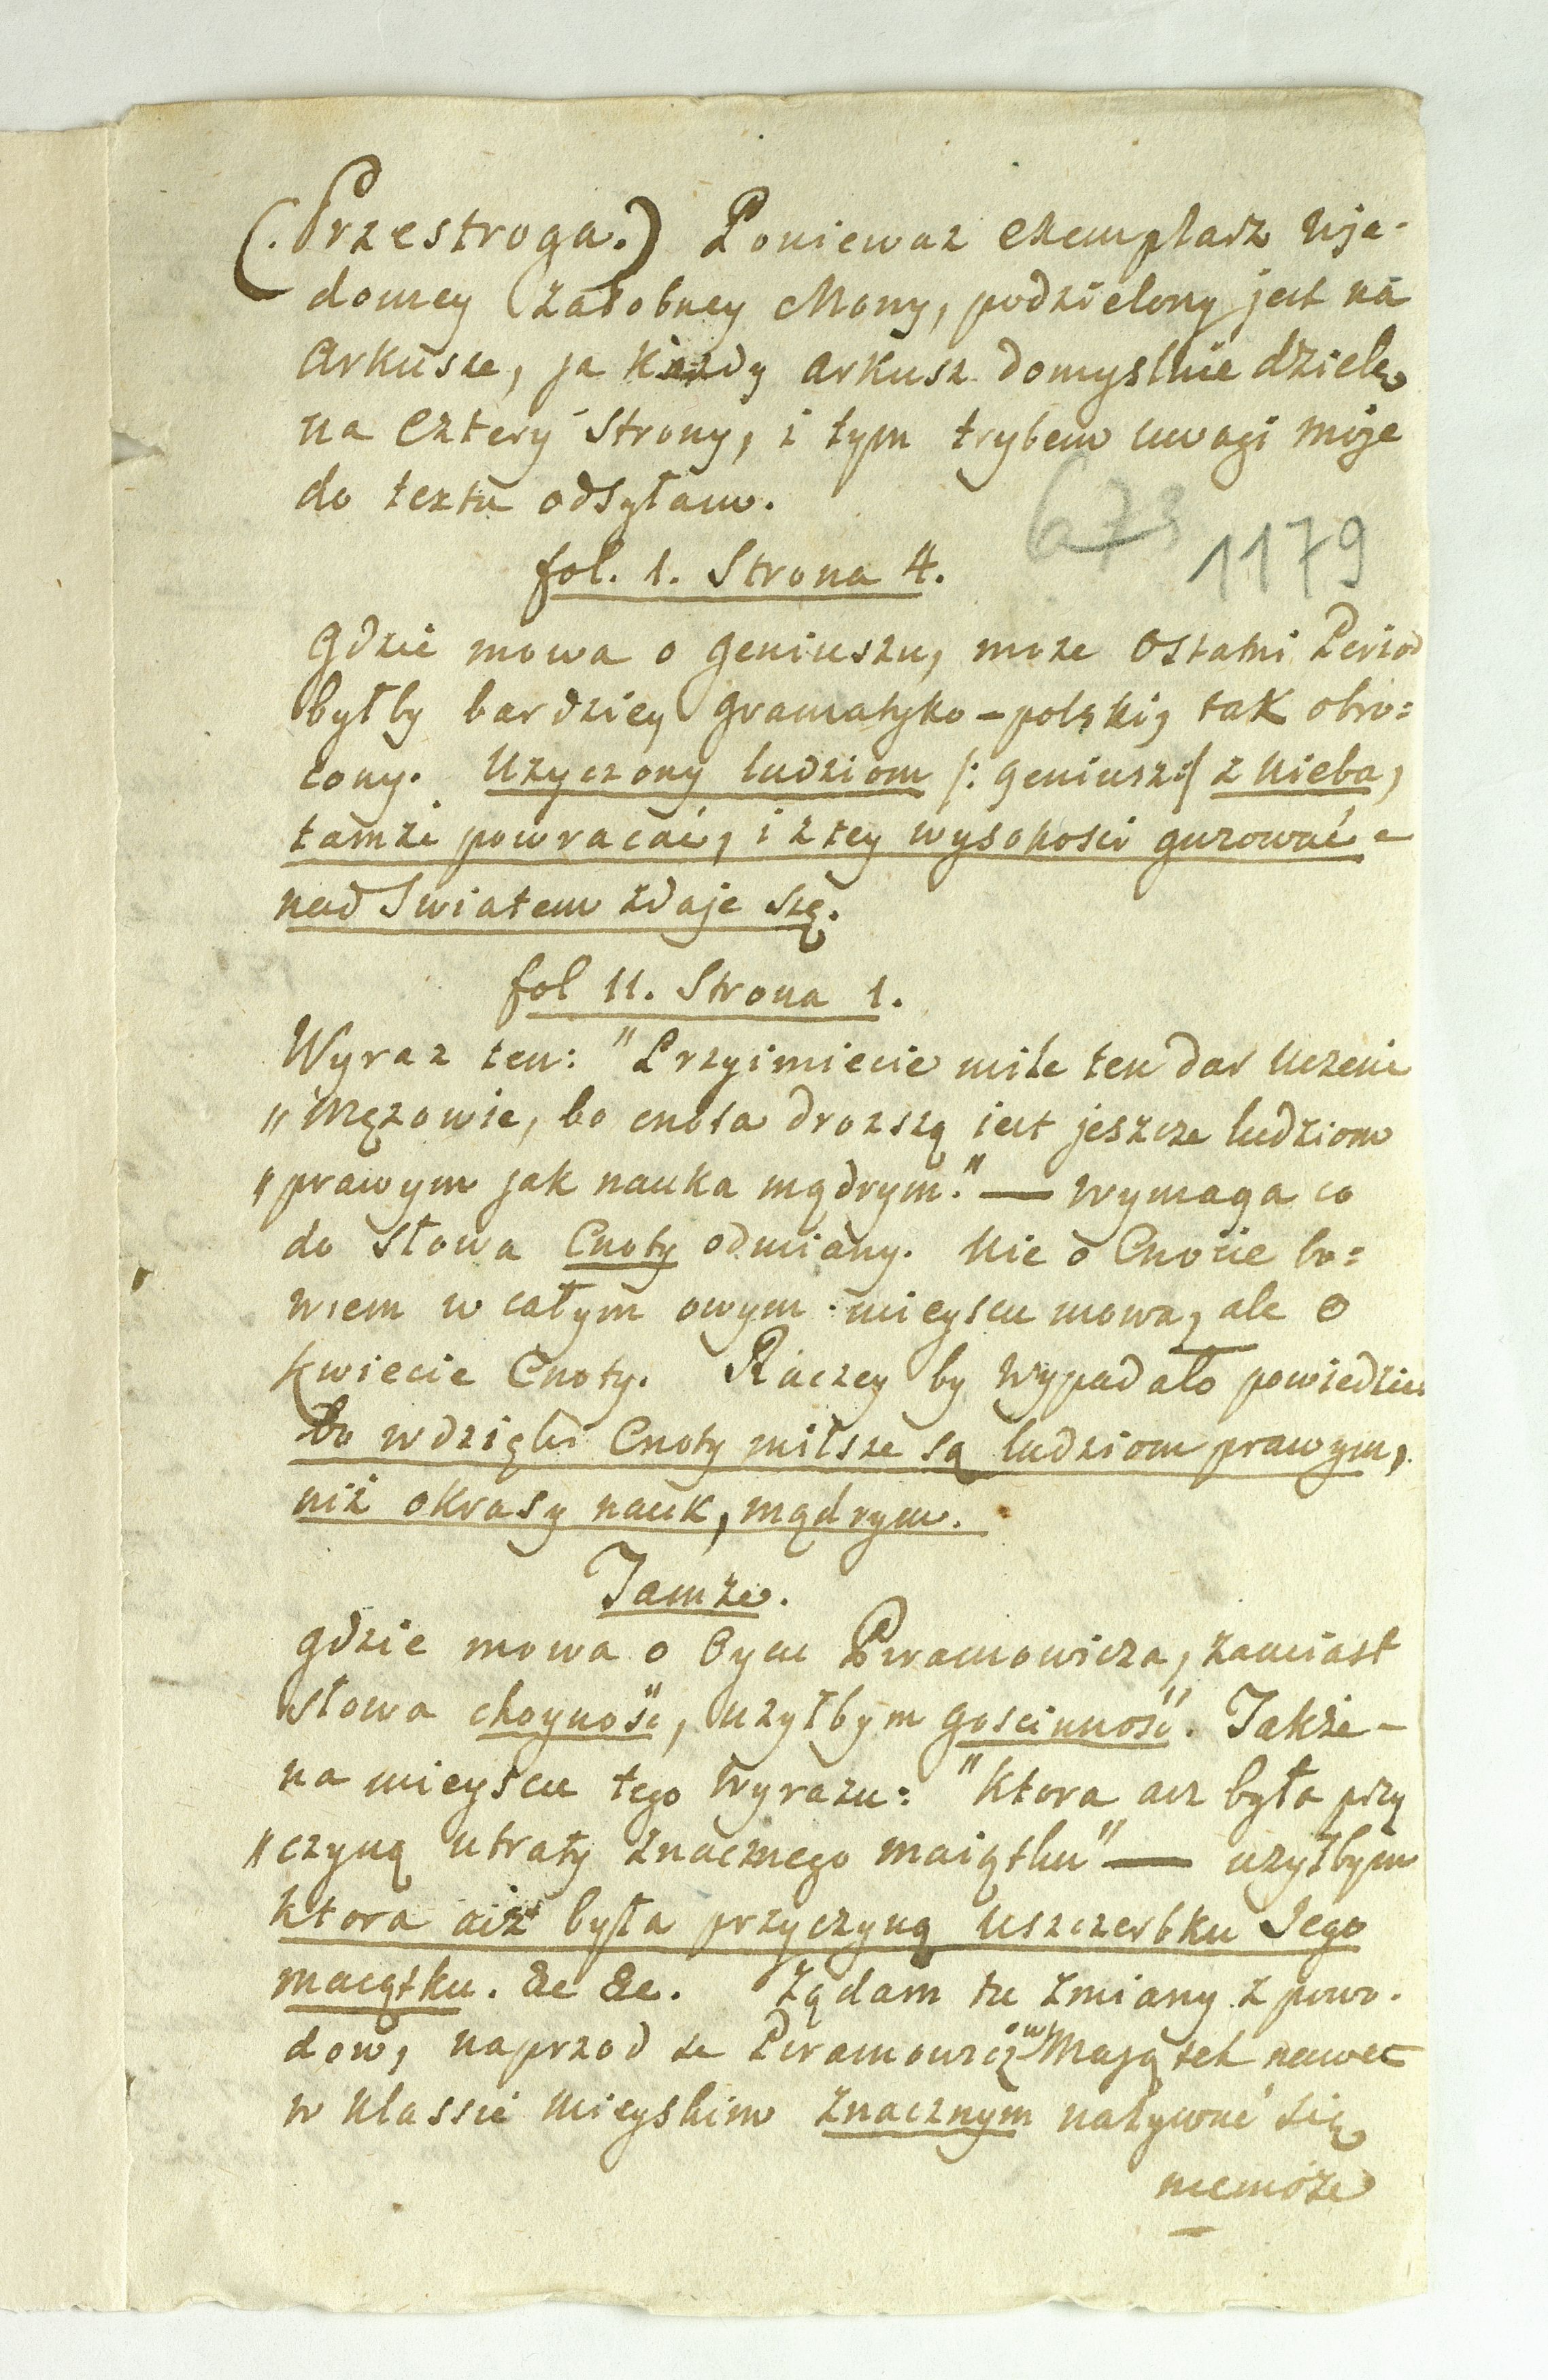 (.Przestroga.) Poniewaz exemplarz wja-
domey załobney Mowy, podzielony jest na
Arkusze, ja każdy arkusz domyslnie dzielę
na cztery strony, i tym trybem uwagi moje
do textu odsyłam.
673 1179
fol. 1. Strona 4.
Gdzie mowa o geniuszu, moze ostatni Period
byłby bardziey gramatyko-polski, tak obro=
cony. Uzyczony ludziom /: geniusz :/ z Nieba,
tamże powracać, i z tey wysokosci gurować -
nad Swiatem zdaje się.
fol 11. Strona 1.
Wyraz ten: "Przyimiecie mile ten dar Uczeni
"Mężowie, bo cnota drozszą iest jeszcze ludziom
"prawym jak nauka mądrym." — wymaga co
do słowa Cnoty odmiany. Nie o Cnocie bo=
wiem w całym owym mieyscu mowa, ale o
kwiecie Cnoty. Raczey by wypadało powiedzieć
bo wdzięki Cnoty milsze są ludziom prawym,
niż okrasy nauk, mądrym.
Tamże.
gdzie mowa o Oycu Piramowicza, zamiast
słowa choyność, uzyłbym gościnność. Także -
na mieyscu tego Wyrazu: "Ktora acz była przy
"czyną utraty znacznego maiątku" — uzyłbym
ktora aiż była przyczyną uszczerbku Jego
maiątku. &c &c. Żądam tu zmiany z powo-
dow, naprzod ze Piramowiczow Majątek nawet
w klassie mieyskim znacznym nazywać się
niemoże